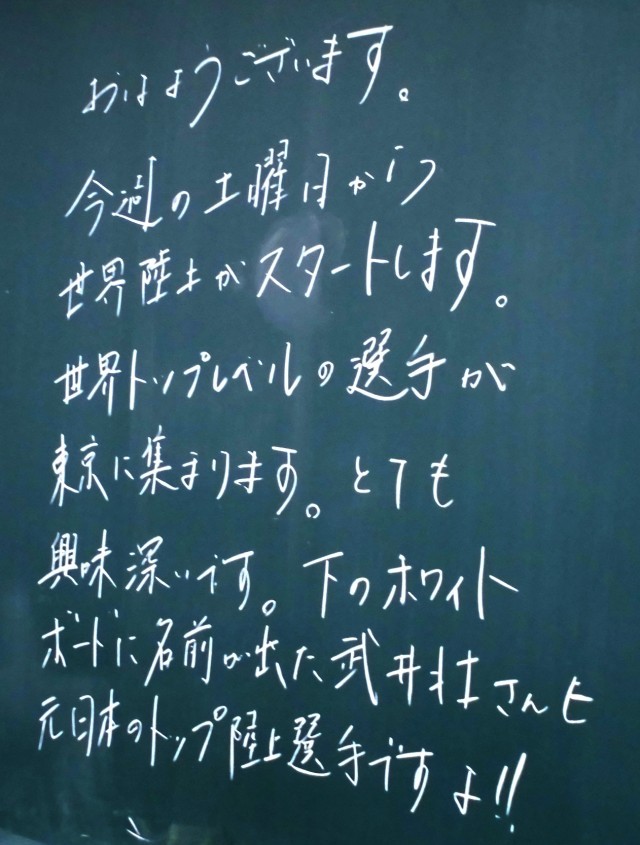 おはようございます。
今週の土曜日から
世界陸上がスタートします。
世界トップレベルの選手が
東京に集まります。とても
興味深いです。下のホワイト
ボードに名前が出た武井壮さんも
元日本のトップ陸上選手ですよ!!